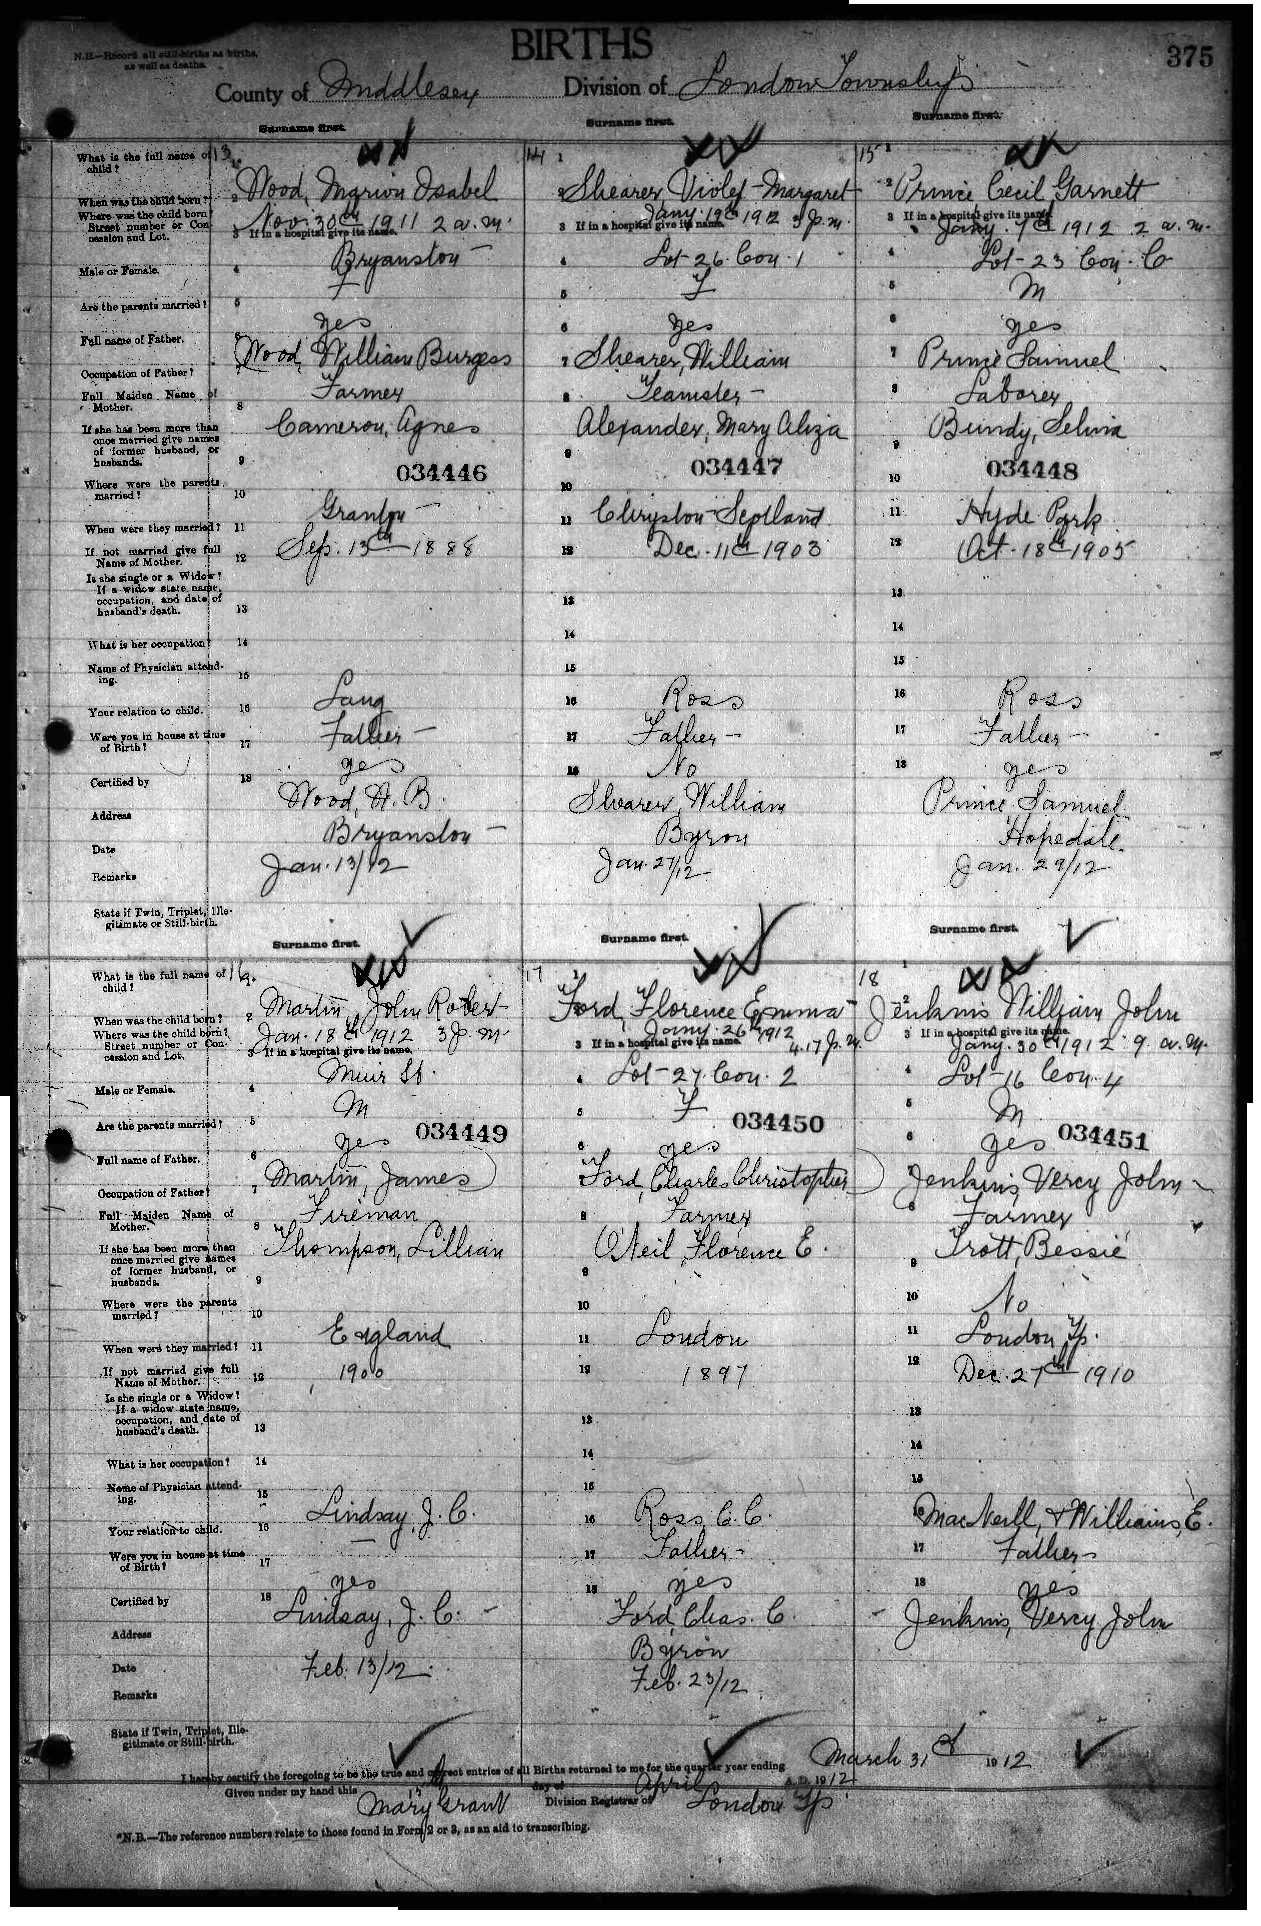 BIRTHS
375
N.B.—Record all still-births as births,
as well as deaths.
County of Middlesex Division of London Township
Surname first. Surname first. Surname first.
What is the full name of child? 13 14 15
When was the child born? Wood, Marion Isabel Shearer, Violet Margaret Prince Cecil Garnett
Where was the child born? Street number or Concession and Lot. Nov. 30th 1911 2 a.m. Jany 19th 1912 3 p.m. Jany. 7th 1912 2 a.m.
If in a hospital give its name. If in a hospital give its name. If in a hospital give its name.
Bryanston Lot 26 Con. 1 Lot 23 Con. C
Male or Female. F F M
Are the parents married? yes yes yes
Full name of Father. Wood, William Burgess Shearer, William Prince Samuel
Occupation of Father? Farmer Teamster Laborer
Full Maiden Name of Mother. Cameron, Agnes Alexander, Mary Aliza Bundy, Selvia
If she has been more than once married give names of former husband, or husbands.
034446 034447 034448
Where were the parents married? Granton Chryston Scotland Hyde Park
When were they married? Sep. 13th 1888 Dec. 11th 1903 Oct. 18th 1905
If not married give full Name of Mother.
Is she single or a Widow? If a widow state name, occupation, and date of husband's death.
What is her occupation?
Name of Physician attending. Lang Ross Ross
Your relation to child. Father Father Father
Were you in house at time of Birth? yes No yes
Certified by Wood, W. B. Shearer, William Prince, Samuel
Address Bryanston Byron Hopedale.
Date Jan. 13/12 Jan. 27/12 Jan. 29/12
Remarks
State if Twin, Triplet, Illegitimate or Still-birth.
Surname first. Surname first. Surname first.
What is the full name of child? 16 17 18
Martin John Robert Ford, Florence Emma Jenkins William John
When was the child born? Jan. 18th 1912 3 p.m. Jany. 26th 1912 4.17 p.m. Jany. 30th 1912 9 a.m.
Where was the child born? Street number or Concession and Lot.
If in a hospital give its name. If in a hospital give its name. If in a hospital give its name.
Muir St. Lot 27 Con. 2 Lot 16 Con. 4
Male or Female. M F M
Are the parents married? yes 034449 yes 034450 yes 034451
Full name of Father. Martin, James Ford, Charles Christopher Jenkins, Vercy John
Occupation of Father? Fireman Farmer Farmer
Full Maiden Name of Mother. Thompson, Lillian O'Neil, Florence E. Trott, Bessie
If she has been more than once married give names of former husband, or husbands. No
Where were the parents married? England London London Tp.
When were they married? 1900 1897 Dec. 27th 1910
If not married give full Name of Mother.
Is she single or a Widow? If a widow state name, occupation, and date of husband's death.
What is her occupation?
Name of Physician attending. Lindsay, J. C. Ross, C. C. MacNeill, & Williams, E.
Your relation to child. — Father Father
Were you in house at time of Birth? yes yes yes
Certified by Lindsay, J. C. Ford, Chas. C. Jenkins, Vercy John
Address Byron
Date Feb. 13/12 Feb. 23/12
Remarks
State if Twin, Triplet, Illegitimate or Still-birth.
I hereby certify the foregoing to be the true and correct entries of all Births returned to me for the quarter year ending March 31st 1912
Given under my hand this day of April A.D. 1912
Mary Grant Division Registrar of London Tp
*N.B.—The reference numbers relate to those found in Form 2 or 3, as an aid to transcribing.